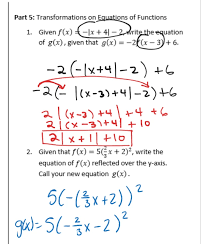 Part 5: Transformations on Equations of Functions
1. Given f(x) = -|x + 4| - 2, write the equation
of g(x), given that g(x) = -2f(x - 3) + 6.
-2(-|x+4|-2) +6
-2(-|(x-3)+4|-2)+6
2|(x-3)+4|+4+6
2|(x-3)+4|+10
2|x+1|+10
2. Given that f(x) = 5(2/3x + 2)², write the
equation of f(x) reflected over the y-axis.
Call your new equation g(x).
5(-(2/3x+2))²
g(x)=5(-2/3x-2)²